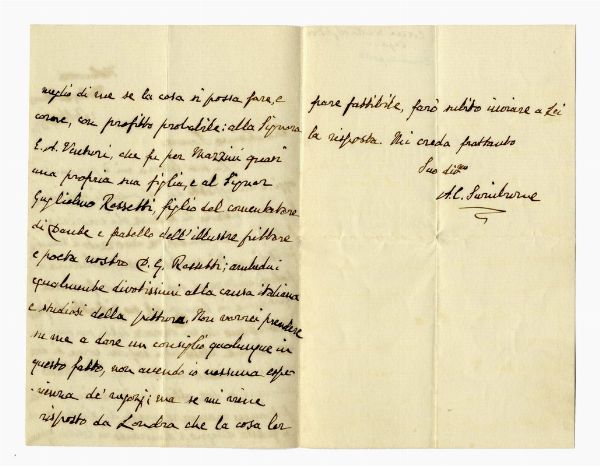 meglio di me se la cosa si possa fare, e
come, con profitto probabile: alla Signora
E. A. Venturi, che fu per Mazzini quasi
una propria sua figlia, e al Signor
Guglielmo Rossetti, figlio del comentatore
di Dante e fratello dell'illustre pittore
e poeta nostro D. G. Rossetti; ambedui
egualmente divotissimi alla causa italiana
e studiosi della pittura. Non vorrei prendere
su me a dare un consiglio qualunque in
questo fatto, non avendo io nessuna espe-
rienza de' negozj; ma se mi viene
risposto da Londra che la cosa lor
pare fattibile, farò subito inviare a Lei
la risposta. Mi creda frattanto
Suo div.mo
A. C. Swinburne